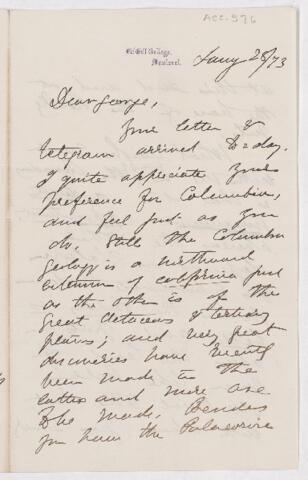 ACC-976
McGill College,
Montreal.
Jany 28/73
Dear George,
Your letter &
telegram arrived to day.
I quite appreciate your
preference for Columbia,
and feel just as you
do. Still the Columbia
geology is a northward
extension of California just
as the other is of the
great Cretaceous & tertiary
plains; and very great
discoveries have recently
been made in the
latter and more are
to be made. Besides
you have the Palaeozoic